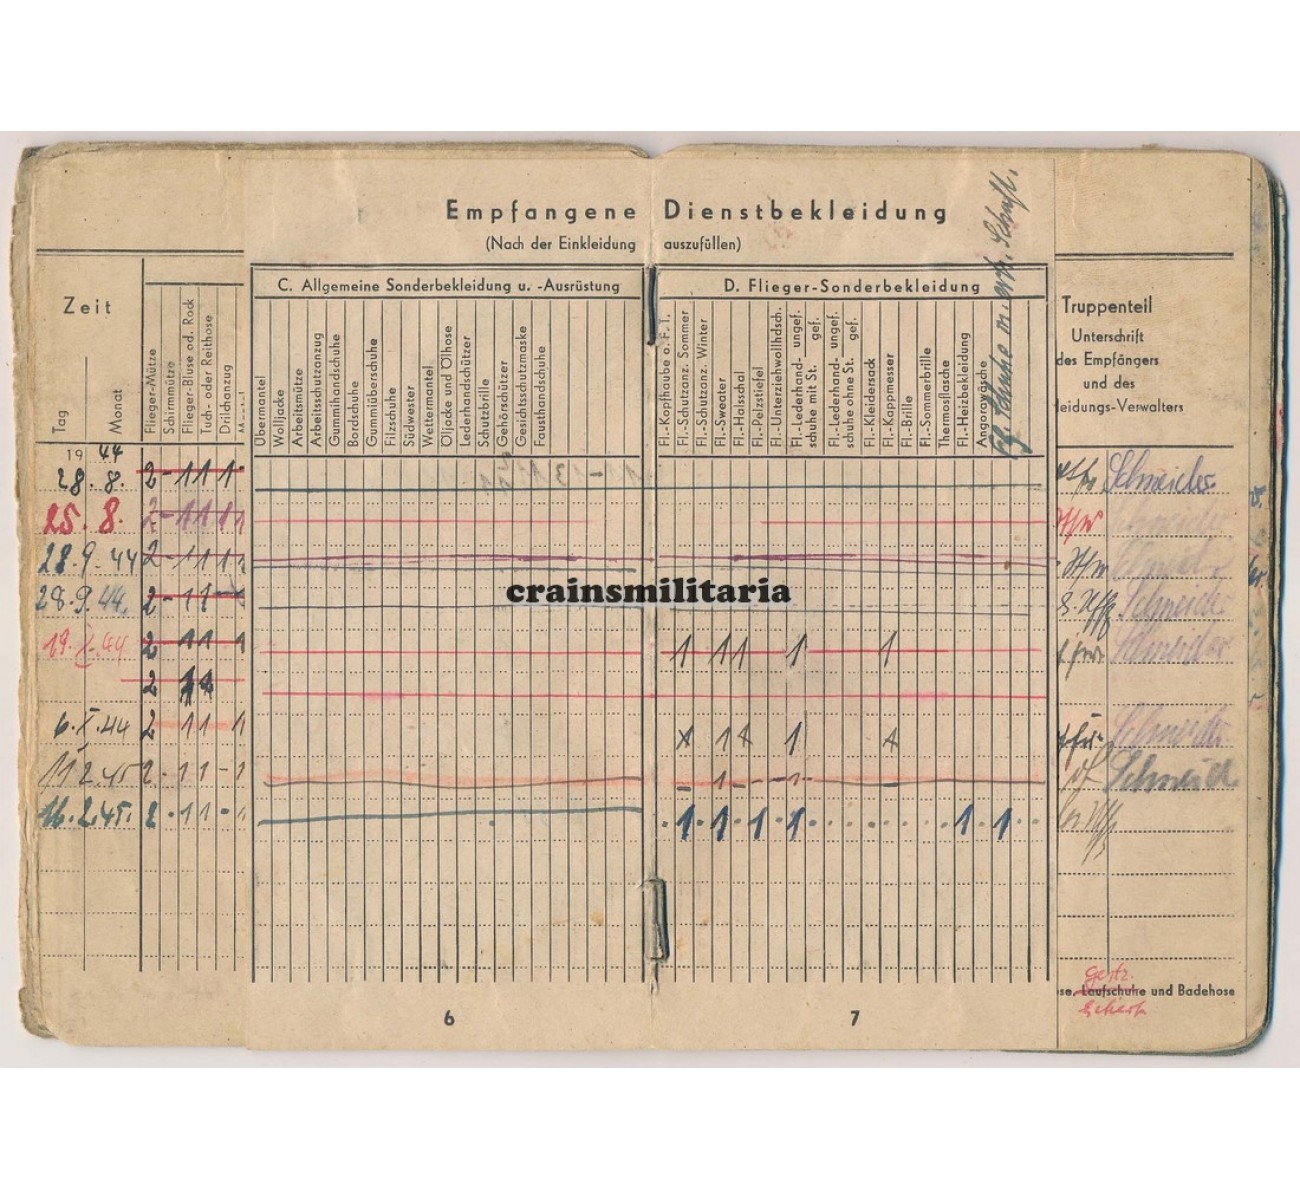 Empfangene Dienstbekleidung
(Nach der Einkleidung auszufüllen)
C. Allgemeine Sonderbekleidung u. -Ausrüstung
D. Flieger-Sonderbekleidung
Zeit
Tag
Monat
Flieger-Mütze
Schirmmütze
Flieger-Bluse od. Rock
Tuch- oder Reithose
Drillichanzug
Übermantel
Wolljacke
Arbeitsmütze
Arbeitsschutzanzug
Gummihandschuhe
Bordschuhe
Gummiüberschuhe
Filzschuhe
Südwester
Wettermantel
Öljacke und Ölhose
Lederhandschützer
Schutzbrille
Gehörschützer
Gesichtsschutzmaske
Fausthandschuhe
Fl.-Kopfhaube o. F. T.
Fl.-Schutzanz. Sommer
Fl.-Schutzanz. Winter
Fl.-Sweater
Fl.-Halsschal
Fl.-Pelzstiefel
Fl.-Unterziehwollhdsch.
Fl.-Lederhand- ungef.
schuhe mit St. gef.
Fl.-Lederhand- ungef.
schuhe ohne St. gef.
Fl.-Kleidersack
Fl.-Kappmesser
Fl.-Brille
Fl.-Sommerbrille
Thermosflasche
Fl.-Heizbekleidung
Angorawäsche
Truppenteil
Unterschrift
des Empfängers
und des
leidungs-Verwalters
19 44
28. 8. 2 - 1 1 1 Schneider
25. 8. 2 - 1 1 1 1
28. 9. 44 2 - 1 1 1
28. 9. 44. 2 - 1 1 - Schneider
19. X. 44 2 - 1 1 - 1 1 1 1 1 1 Schneider
2 1 1
6. X. 44 2 - 1 1 - 1 1 1 Schneider
11 2. 45 2 - 1 1 - 1 - 1 - - 1 -
16. 2. 45. 2 - 1 1 - 1 1 1 1 1 1
crainsmilitaria
ose, Laufschuhe und Badehose
6
7